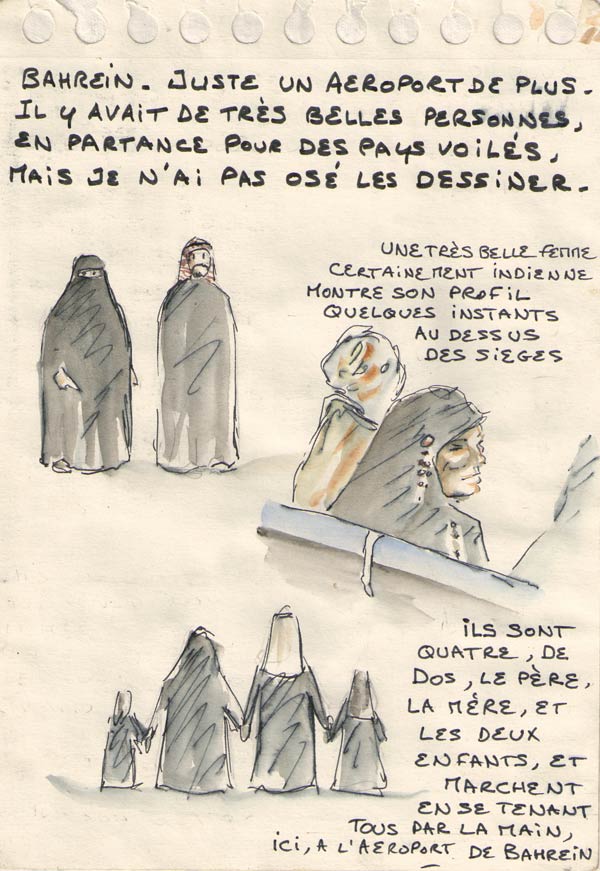 BAHREIN. JUSTE UN AEROPORT DE PLUS.
IL Y AVAIT DE TRÈS BELLES PERSONNES,
EN PARTANCE POUR DES PAYS VOILÉS,
MAIS JE N'AI PAS OSÉ LES DESSINER.
UNE TRÈS BELLE FEMME
CERTAINEMENT INDIENNE
MONTRE SON PROFIL
QUELQUES INSTANTS
AU DESSUS
DES SIEGES
ILS SONT
QUATRE, DE
DOS, LE PÈRE,
LA MÈRE, ET
LES DEUX
ENFANTS, ET
MARCHENT
EN SE TENANT
TOUS PAR LA MAIN,
ICI, A L'AEROPORT DE BAHREIN